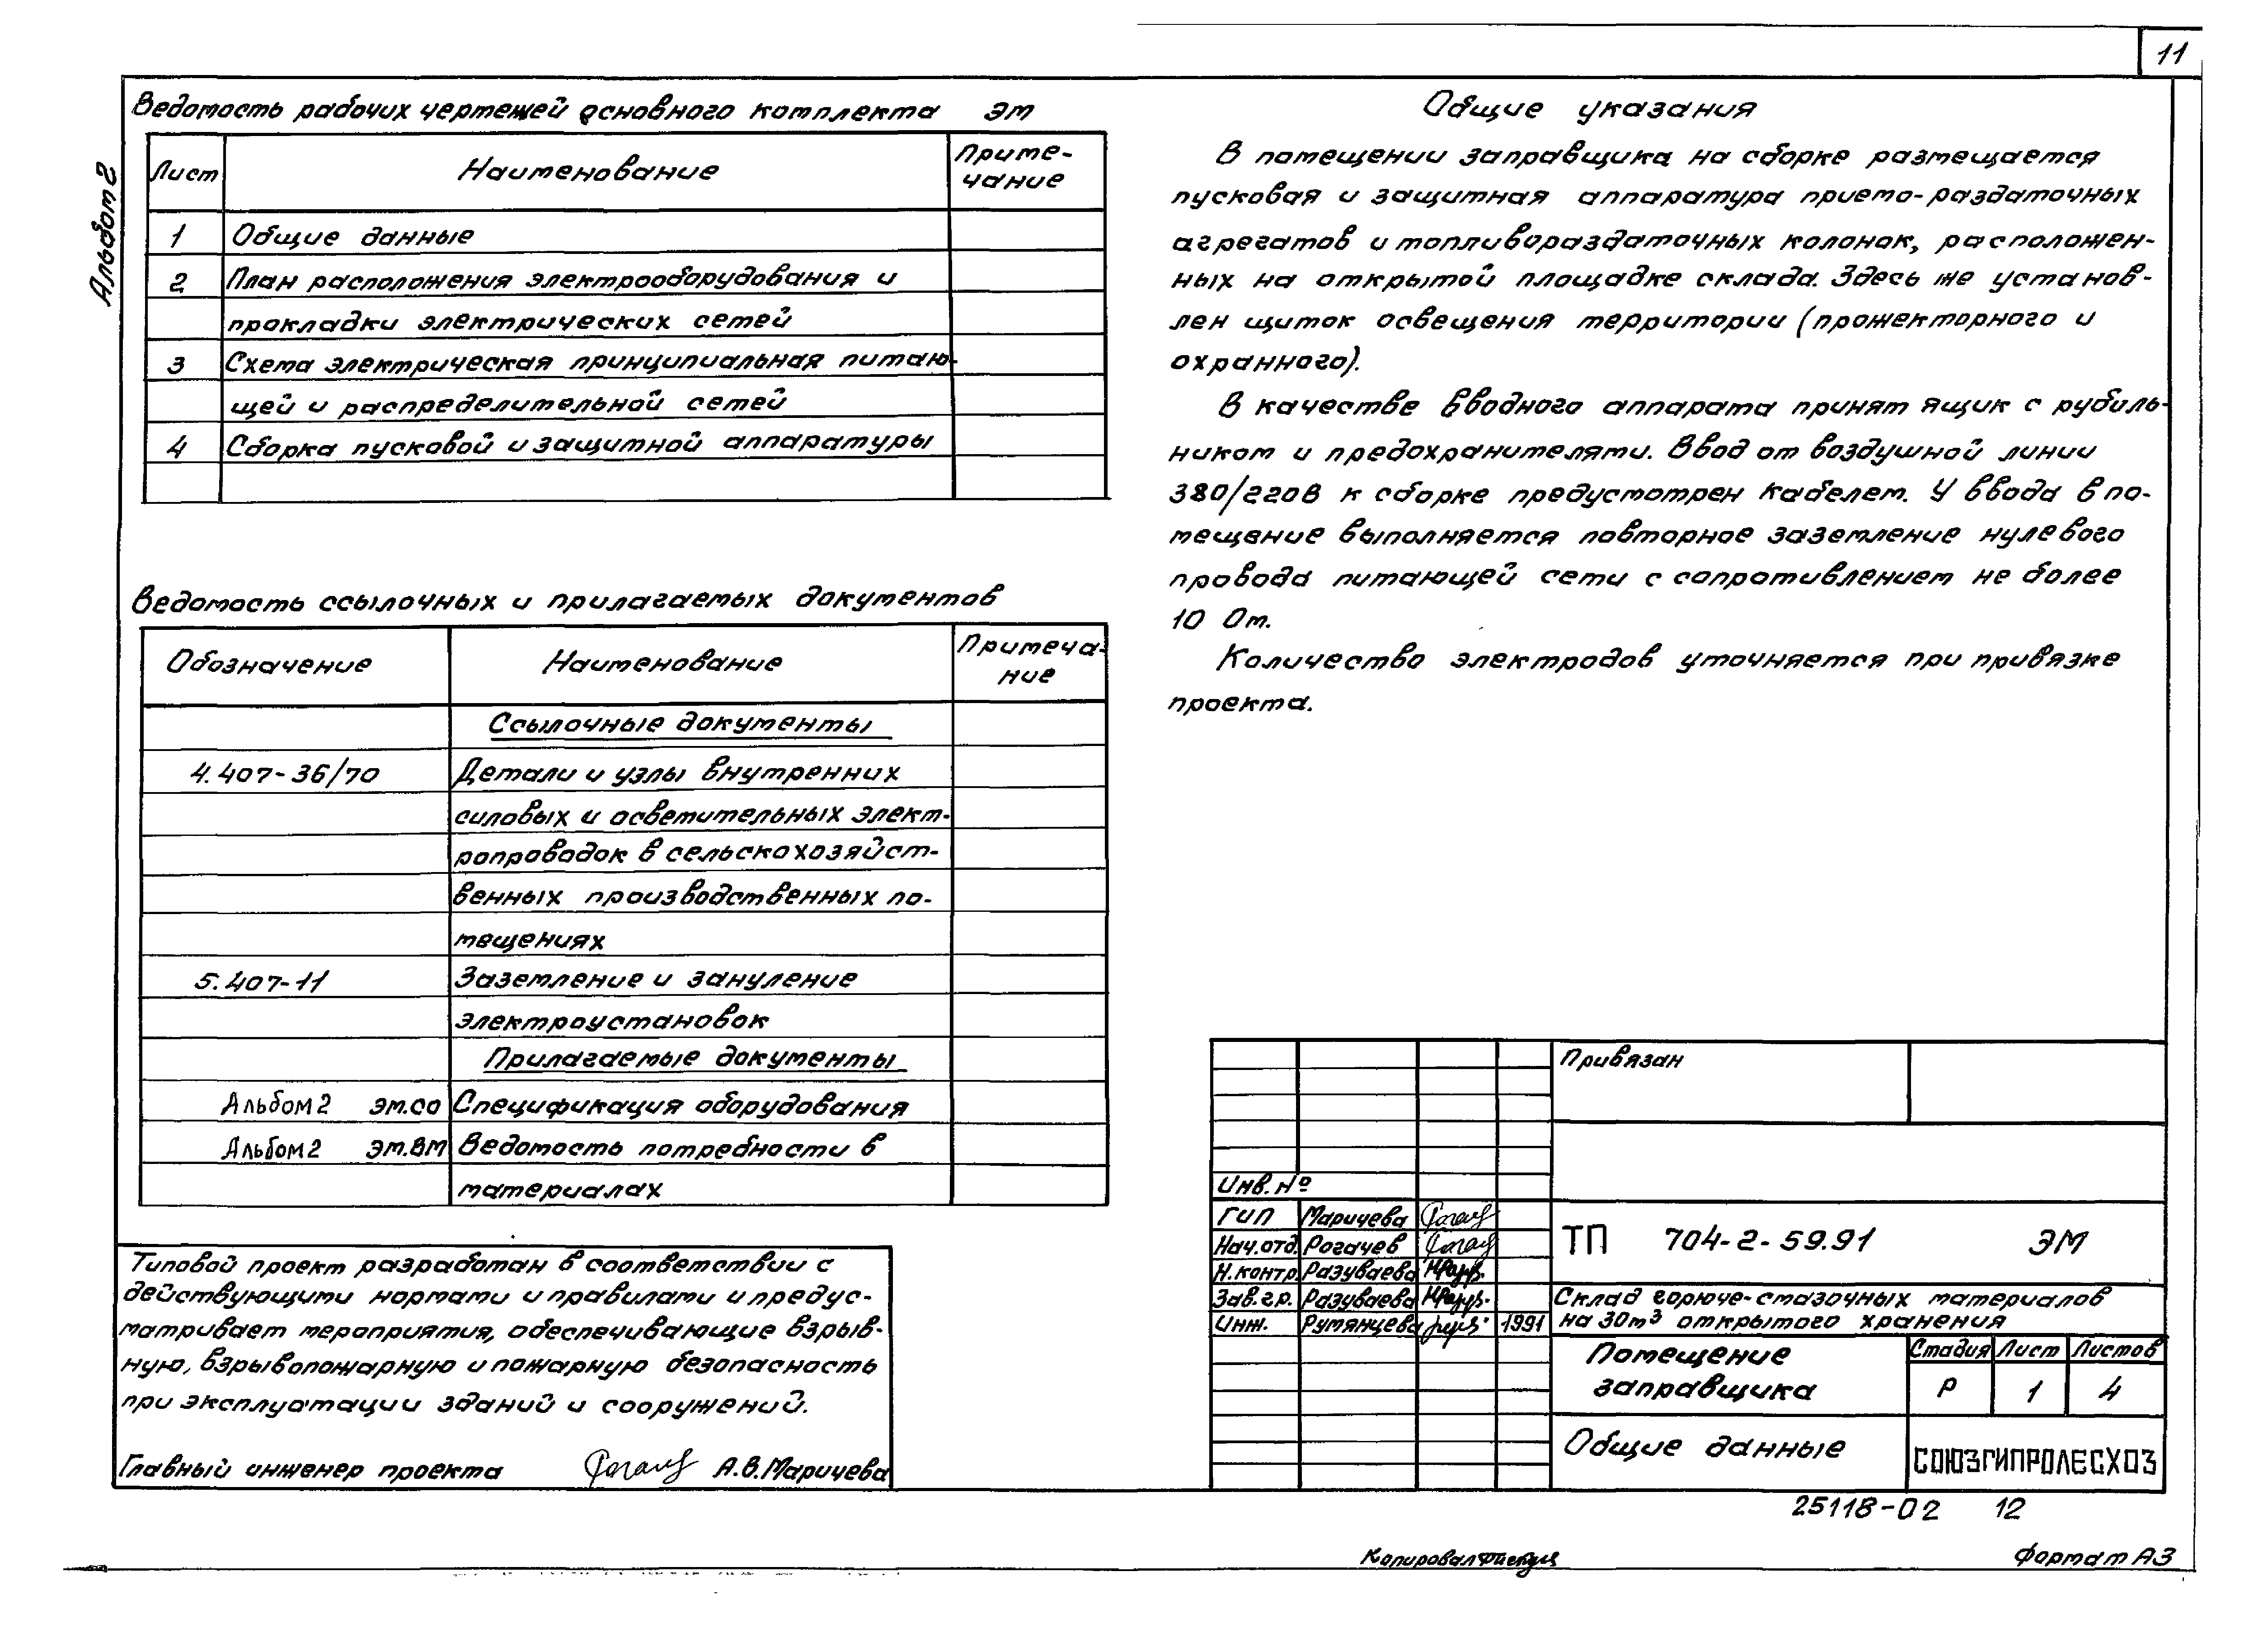 11
Альбом 2
Ведомость рабочих чертежей основного комплекта ЭМ
Лист Наименование Приме-
чание
1 Общие данные
2 План расположения электрооборудования и
прокладки электрических сетей
3 Схема электрическая принципиальная питаю-
щей и распределительной сетей
4 Сборка пусковой и защитной аппаратуры
Ведомость ссылочных и прилагаемых документов
Обозначение Наименование Примеча-
ние
Ссылочные документы
4.407-36/70 Детали и узлы внутренних
силовых и осветительных элект-
ропроводок в сельскохозяйст-
венных производственных по-
мещениях
5.407-11 Заземление и зануление
электроустановок
Прилагаемые документы
Альбом 2 ЭМ.СО Спецификация оборудования
Альбом 2 ЭМ.ВМ Ведомость потребности в
материалах
Типовой проект разработан в соответствии с
действующими нормами и правилами и предус-
матривает мероприятия, обеспечивающие взрыв-
ную, взрывопожарную и пожарную безопасность
при эксплуатации зданий и сооружений.
Главный инженер проекта А.В.Маричева
Общие указания
В помещении заправщика на сборке размещается
пусковая и защитная аппаратура приемо-раздаточных
агрегатов и топливораздаточных колонок, расположен-
ных на открытой площадке склада. Здесь же установ-
лен щиток освещения территории (прожекторного и
охранного).
В качестве вводного аппарата принят ящик с рубиль-
ником и предохранителями. Ввод от воздушной линии
380/220В к сборке предусмотрен кабелем. У ввода в по-
мещение выполняется повторное заземление нулевого
провода питающей сети с сопротивлением не более
10 Ом.
Количество электродов уточняется при привязке
проекта.
Привязан
Инв. №
ГИП Маричева
Нач.отд. Рогачев
Н.контр. Разуваева
Зав.гр. Разуваева
Инж. Румянцева 1991
ТП 704-2-59.91 ЭМ
Склад горюче-смазочных материалов
на 30м³ открытого хранения
Помещение
заправщика
Стадия Лист Листов
Р 1 4
Общие данные
СОЮЗГИПРОЛЕСХОЗ
25118-02 12
Копировал
Формат А3